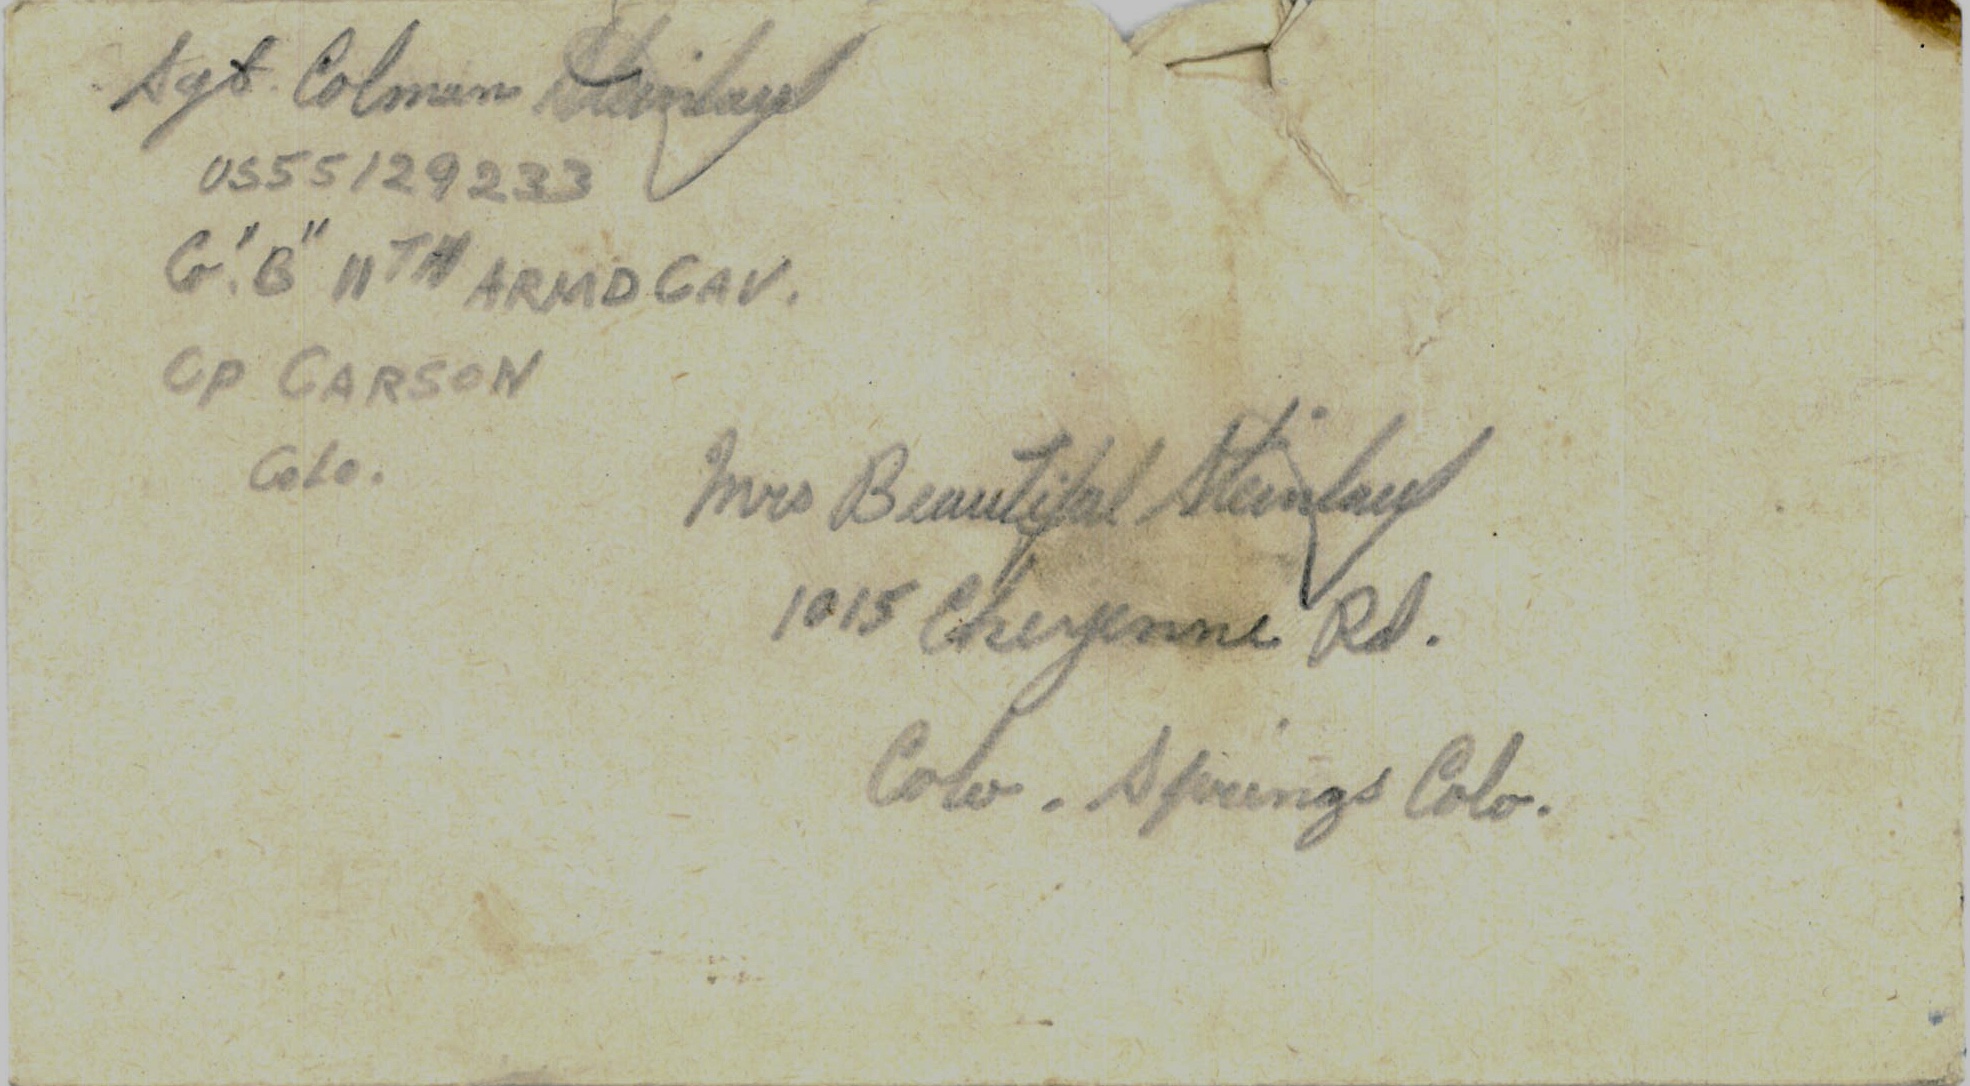 Sgt. Colman Steinlauf
US55129233
Co. "B" 11TH ARMD CAV.
CP CARSON
Colo.
Mrs Beautiful Steinlauf
1015 Cheyenne Rd.
Colo. Springs Colo.